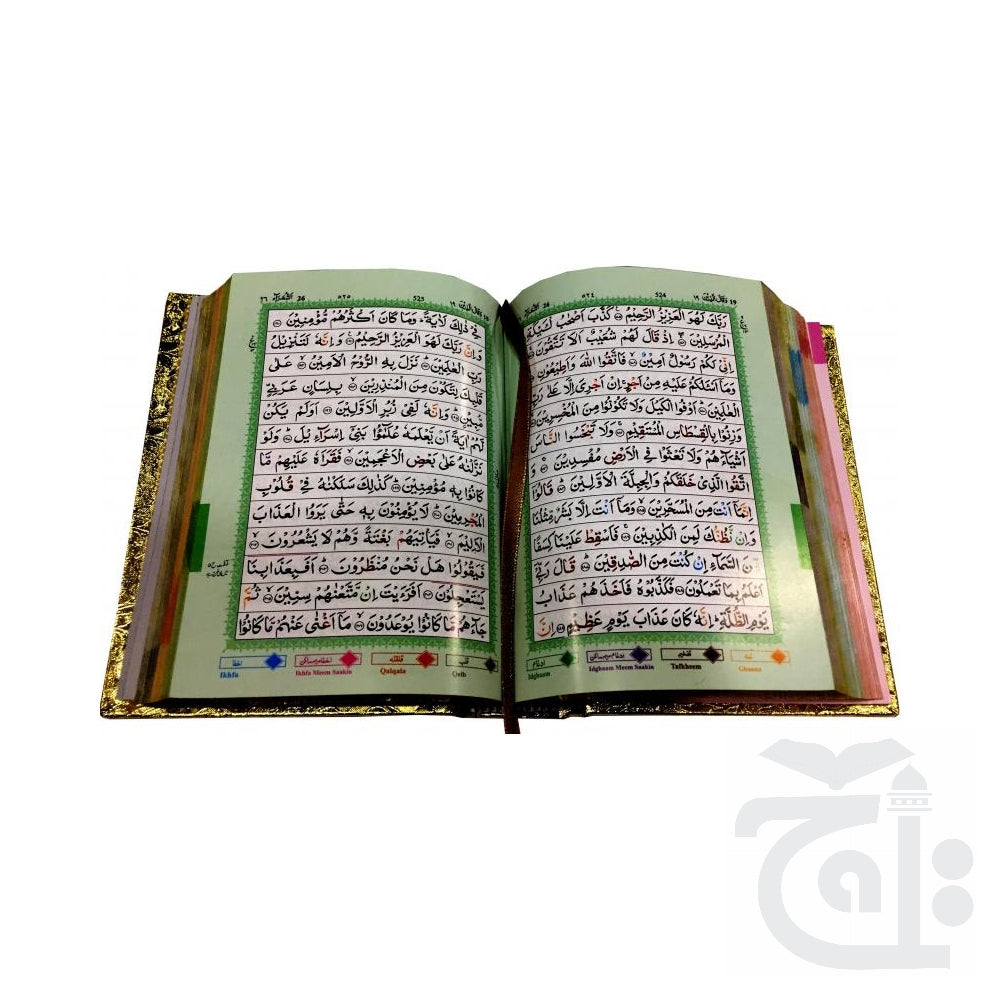 19 وَقَالَ الَّذِيْنَ ١٩ 524 ٥٢٤
رَبَّكَ لَهُوَ الْعَزِيْزُ الرَّحِيْمُ كَذَّبَ اَصْحٰبُ
الْمُرْسَلِيْنَ اِذْ قَالَ لَهُمْ شُعَيْبٌ اَلَا تَتَّقُوْنَ
اِنِّيْ لَكُمْ رَسُوْلٌ اَمِيْنٌ فَاتَّقُوا اللّٰهَ وَاَطِيْعُوْنِ
وَمَاۤ اَسْـَٔلُكُمْ عَلَيْهِ مِنْ اَجْرٍ اِنْ اَجْرِيَ اِلَّا عَلٰى رَبِّ
الْعٰلَمِيْنَ اَوْفُوا الْكَيْلَ وَلَا تَكُوْنُوْا مِنَ الْمُخْسِرِيْنَ
وَزِنُوْا بِالْقِسْطَاسِ الْمُسْتَقِيْمِ وَلَا تَبْخَسُوا النَّاسَ
اَشْيَآءَهُمْ وَلَا تَعْثَوْا فِي الْاَرْضِ مُفْسِدِيْنَ وَ
اتَّقُوا الَّذِيْ خَلَقَكُمْ وَالْجِبِلَّةَ الْاَوَّلِيْنَ قَالُوْۤا
اِنَّمَاۤ اَنْتَ مِنَ الْمُسَحَّرِيْنَ وَمَاۤ اَنْتَ اِلَّا بَشَرٌ مِّثْلُنَا
وَاِنْ نَّظُنُّكَ لَمِنَ الْكٰذِبِيْنَ فَاَسْقِطْ عَلَيْنَا كِسَفًا
مِّنَ السَّمَآءِ اِنْ كُنْتَ مِنَ الصّٰدِقِيْنَ قَالَ رَبِّيْۤ
اَعْلَمُ بِمَا تَعْمَلُوْنَ فَكَذَّبُوْهُ فَاَخَذَهُمْ عَذَابُ
يَوْمِ الظُّلَّةِ اِنَّهٗ كَانَ عَذَابَ يَوْمٍ عَظِيْمٍ اِنَّ
غنه Ghunna
تفخیم Tafkheem
ادغام میم ساکن Idghaam Meem Saakin
ادغام Idghaam
525 ٥٢٥ الشُّعَرَآء 26 ٢٦
فِيْ ذٰلِكَ لَاٰيَةً وَمَا كَانَ اَكْثَرُهُمْ مُّؤْمِنِيْنَ
وَاِنَّ رَبَّكَ لَهُوَ الْعَزِيْزُ الرَّحِيْمُ وَاِنَّهٗ لَتَنْزِيْلُ
رَبِّ الْعٰلَمِيْنَ نَزَلَ بِهِ الرُّوْحُ الْاَمِيْنُ عَلٰى
قَلْبِكَ لِتَكُوْنَ مِنَ الْمُنْذِرِيْنَ بِلِسَانٍ عَرَبِيٍّ
مُّبِيْنٍ وَاِنَّهٗ لَفِيْ زُبُرِ الْاَوَّلِيْنَ اَوَلَمْ يَكُنْ
لَّهُمْ اٰيَةً اَنْ يَّعْلَمَهٗ عُلَمٰٓؤُا بَنِيْۤ اِسْرَآءِيْلَ وَلَوْ
نَزَّلْنٰهُ عَلٰى بَعْضِ الْاَعْجَمِيْنَ فَقَرَاَهٗ عَلَيْهِمْ مَّا
كَانُوْا بِهٖ مُؤْمِنِيْنَ كَذٰلِكَ سَلَكْنٰهُ فِيْ قُلُوْبِ
الْمُجْرِمِيْنَ لَا يُؤْمِنُوْنَ بِهٖ حَتّٰى يَرَوُا الْعَذَابَ
الْاَلِيْمَ فَيَاْتِيَهُمْ بَغْتَةً وَّهُمْ لَا يَشْعُرُوْنَ
فَيَقُوْلُوْا هَلْ نَحْنُ مُنْظَرُوْنَ اَفَبِعَذَابِنَا
يَسْتَعْجِلُوْنَ اَفَرَءَيْتَ اِنْ مَّتَّعْنٰهُمْ سِنِيْنَ ثُمَّ
جَآءَهُمْ مَّا كَانُوْا يُوْعَدُوْنَ مَاۤ اَغْنٰى عَنْهُمْ مَّا كَانُوْا
قلب Qalb
قلقله Qalqala
اخفا میم ساکن Ikhfa Meem Saakin
اخفا Ikhfa